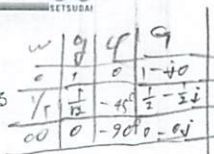 SETSUDAI
ω | g | φ | G
0 | 1 | 0 | 1-j0
1/T | 1/√2 | -45° | 1/2 - 1/2 j
∞ | 0 | -90° | 0 - 0j